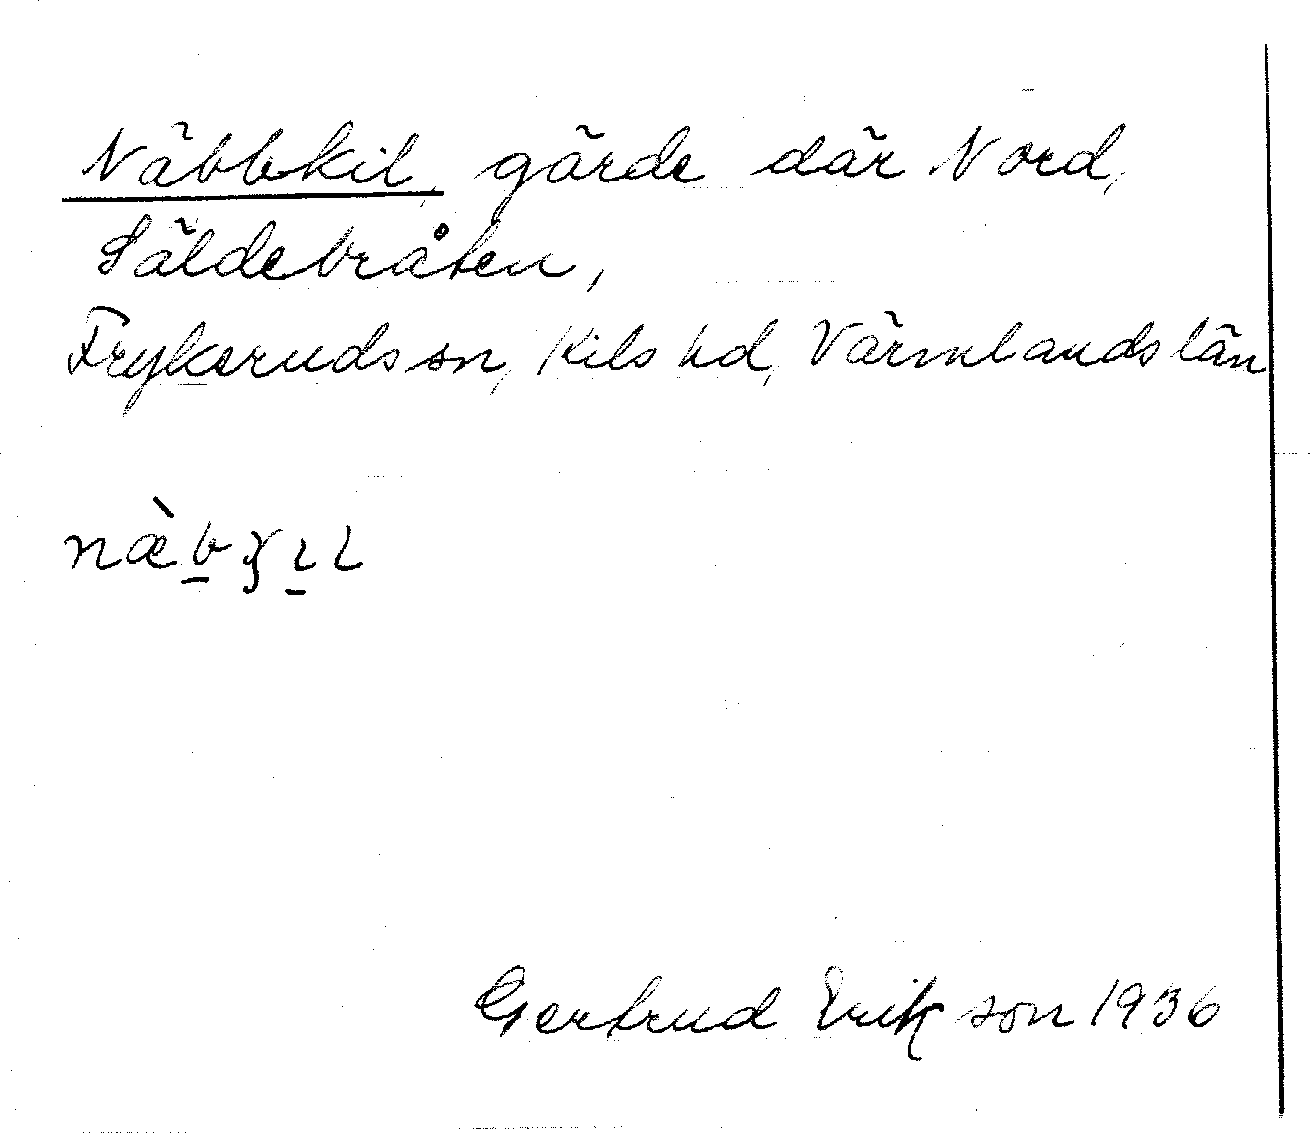 Näbbkil, gärde där Nord,
Säldebråten,
Frykeruds sn, Kils hd, Värmlands län
Gertrud Erikson 1936